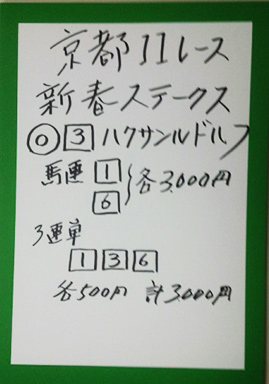 京都11レース
新春ステークス
◎3ハクサンルドルフ
馬連1
6 各3,000円
3連単
1 3 6
各500円 計3000円